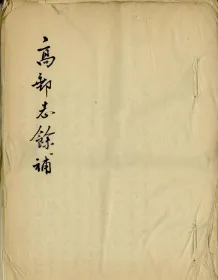 高郵志餘補